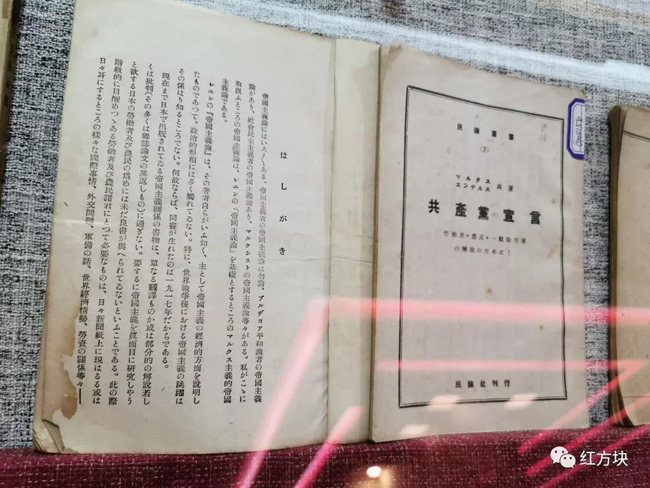 はしがき
帝國主義論にはいろ〱ある。帝國主義者の帝國主義論は勿論、ブルヂョア平和論者の帝國主義
論があり、社會民主主義者の帝國主義論あり、マルクシストの帝國主義論等々がある。私がこゝに
取扱ふところの帝國主義論は、レニンの「帝國主義論」を基礎とするところのマルクス主義的帝國
主義論である。
レニンの『帝國主義論』は、その著者自らがいふ如く、主として帝國主義の經濟的方面を說明し
たものであつて、政治的形相には多く觸れてゐない。特に、世界戰爭後における帝國主義の跳躍は
その係はり知るところでない。何故ならば、同書が生れたのは一九一七年だからである。
現在まで日本で出版されてゐる帝國主義關係の書物は、單なる飜譯ものか或は部分的の解說若し
くは批判(その多くは雜誌論文の蒸返しもの)に過ぎない。要するに帝國主義を眞面目に硏究しやう
と欲する日本の勞働者及び農民の爲めには未だ良書が與へられてゐないといふことである。此の際
階級的に目醒めつゝある勞働者及び農民諸君にとつて必要なものは、日々新聞紙上に現はるる或は
日々耳にするところの樣々な國際事情、外交問題、軍備の話、世界經濟情勢、勞資の關係等々――
民論叢書
(7)
マルクス
エンゲルス 共著
共產黨宣言
勞働者・農民・一般無產者
の解放のために!
民論社刊行
红方块